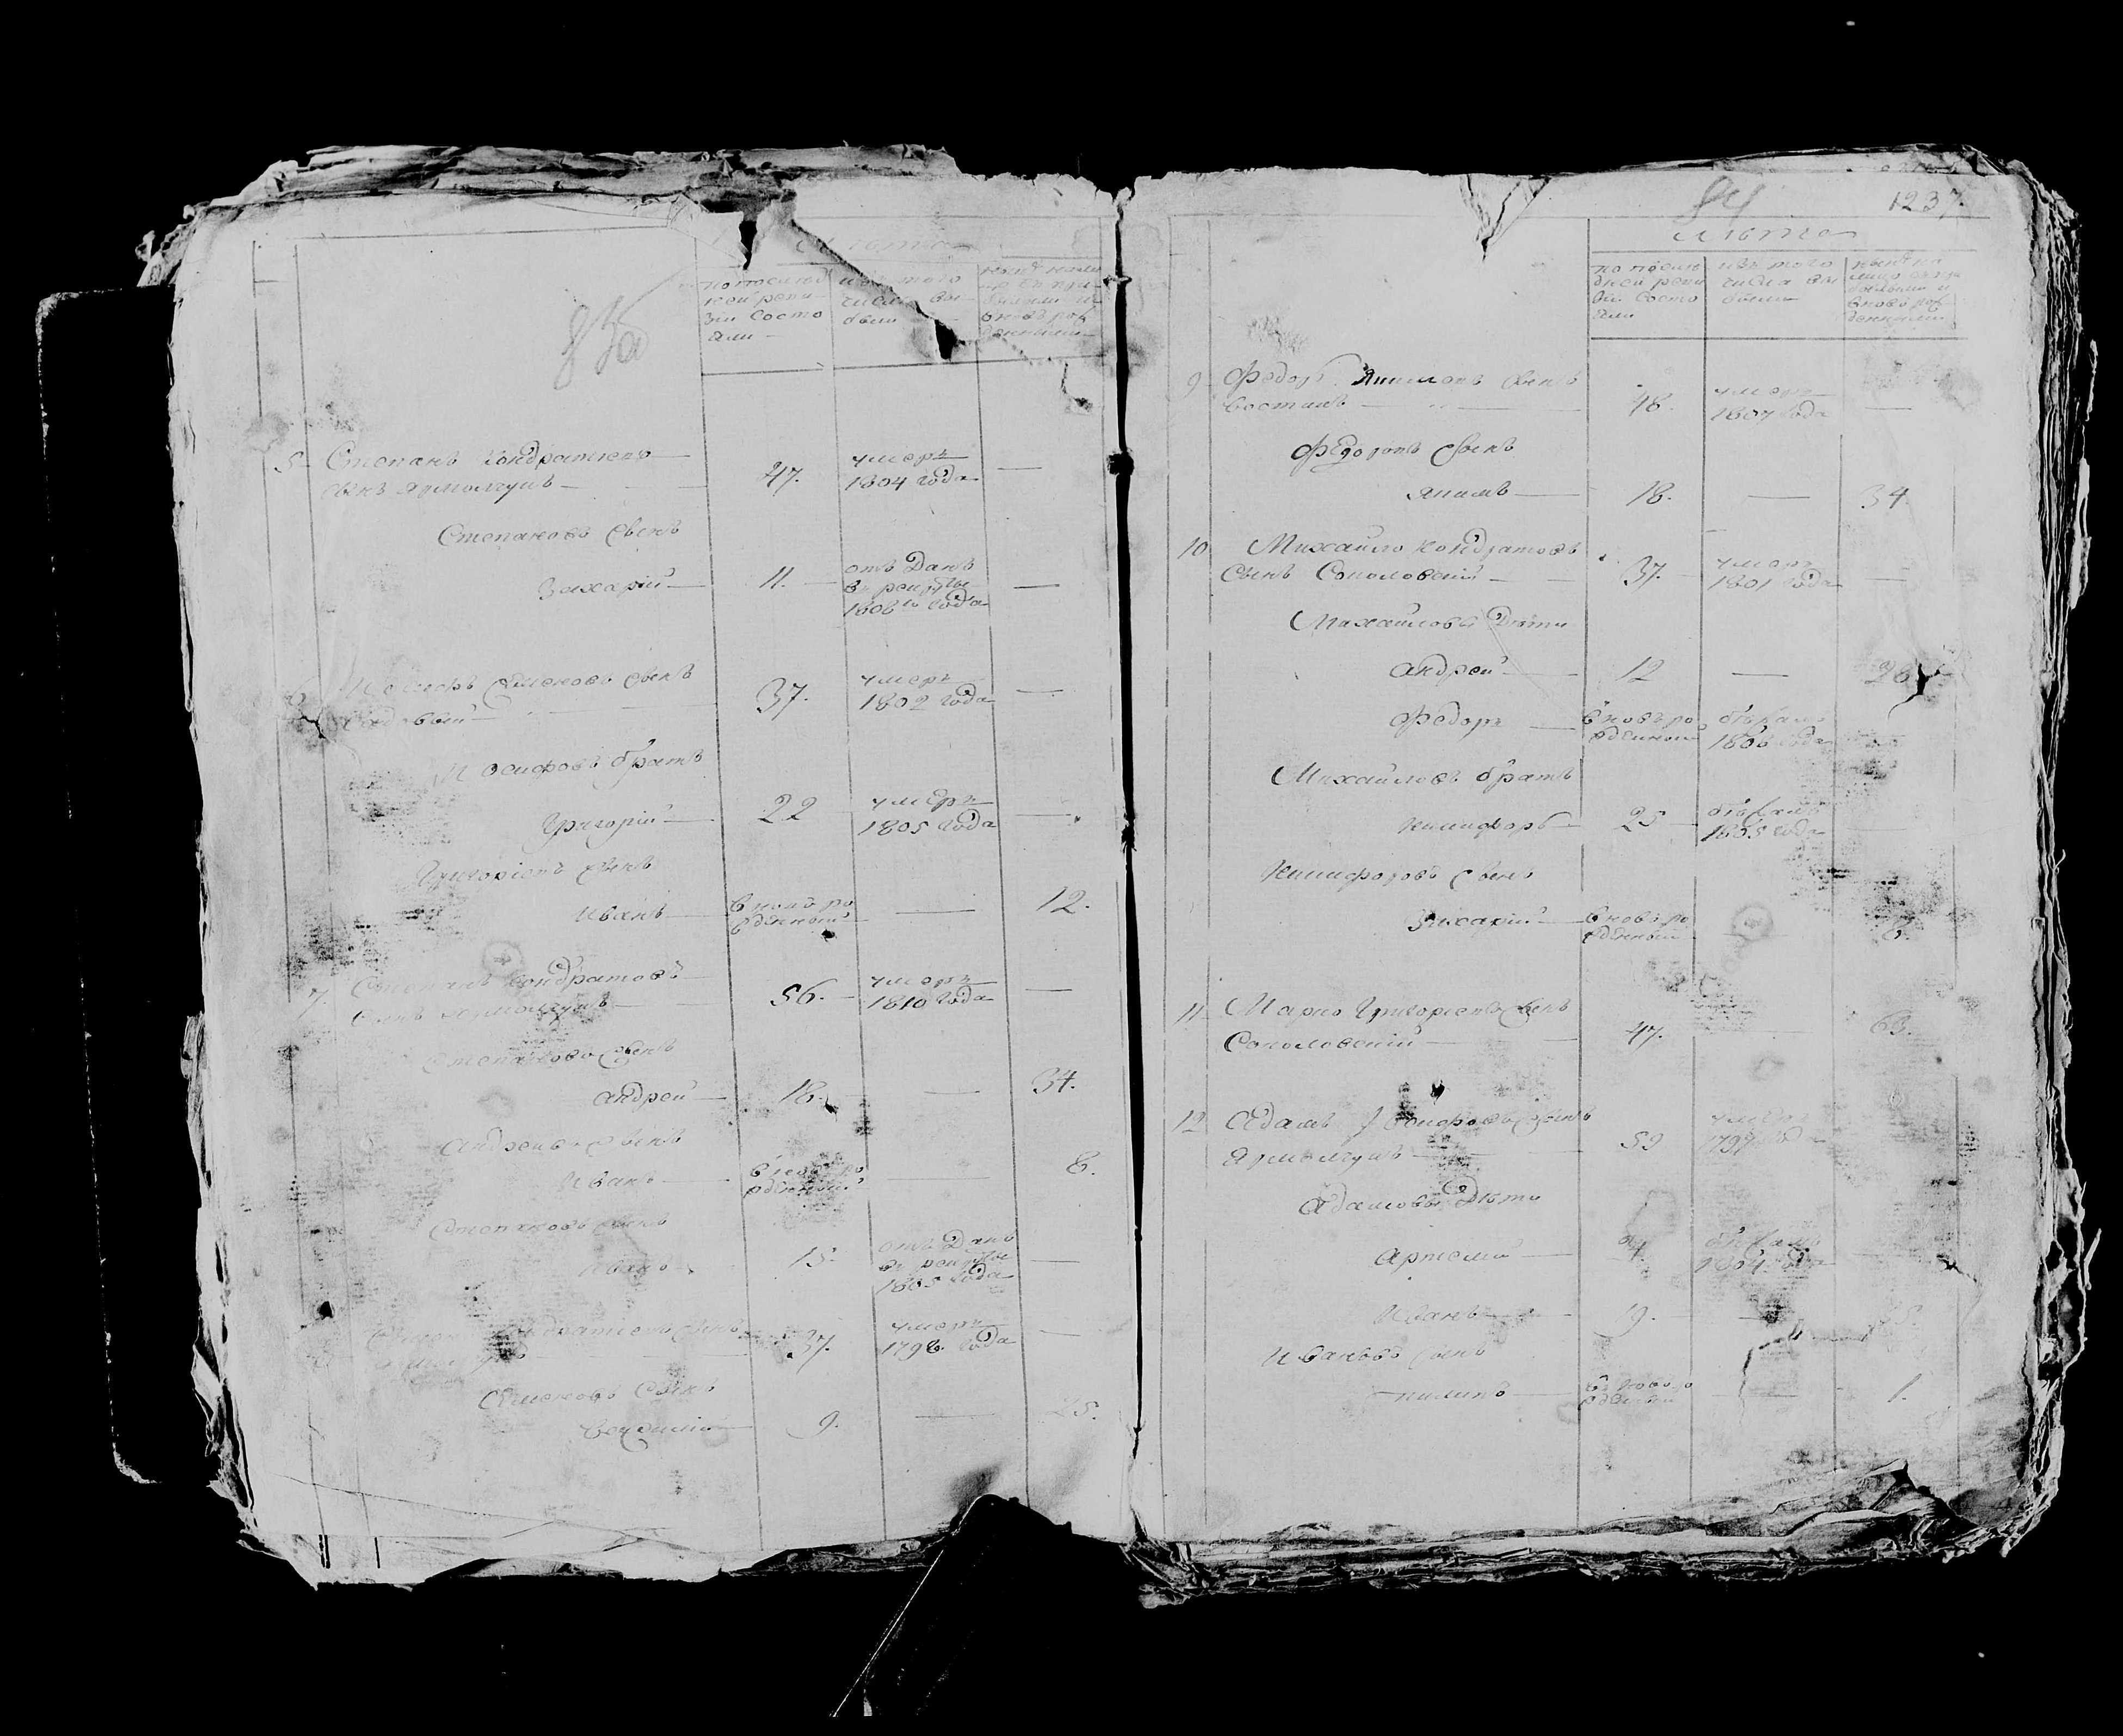 83об
Лѣта
по послѣд
ней реви
зіи состо
яли
изъ того
числа вы
были
5 Степанъ Кондратьевъ
сынъ Ярмолчукъ 47. умеръ
1804 года —
Степановъ сынъ
Захарій 11. отъданъ
въ рекруты
1808го года —
Семеновъ сынъ 37. умеръ
1802 года —
Иосифовъ братъ
Григорій 22 умеръ
1805 года —
Григорьевъ сынъ
Иванъ вновь ро
жденный — 12.
7. Степанъ Кондратовъ
сынъ 56. умеръ
1810 года —
Степановъ сынъ
Андрей 18. — 34.
Андреевъ сынъ
Иванъ вновь ро
жденный — 8.
Степановъ сынъ
Иванъ 15. отъданъ
въ рекруты
1805 года —
Кондратьевъ сынъ 37. умеръ
1798. года —
Семеновъ сынъ
9. — 25.
84 1237.
Лѣта
по послѣ
дней реви
зіи состо
яли
изъ того
числа вы
были
нынѣ на
лицо съ при
былыми и
вновь рож
денными
9 Федоръ Якимовъ сынъ
48. умеръ
1807 года —
Федоровъ сынъ
Якимъ 18. — 34.
10 Михайло Кондратовъ
сынъ Соколовскій 37. умеръ
1801 года —
Михайловы дѣти
Андрей 12 — 28
Федоръ вновь ро
жденной бѣжалъ
1808 года
Михайловъ братъ
Никифоръ 25 бѣжалъ
1805 года
Никифоровъ сынъ
Захарій вновь ро
жденный 8.
11 Марко Григорьевъ сынъ
Соколовскій 47. 63.
12 Адамъ Иосифовъ сынъ
Ярмолчукъ 59 умеръ
1797 года
Адамовы дѣти
Артемій бѣжалъ
1804 года
Иванъ 19.
Ивановъ сынъ
Пилипъ вновь ро
жденный — 1.